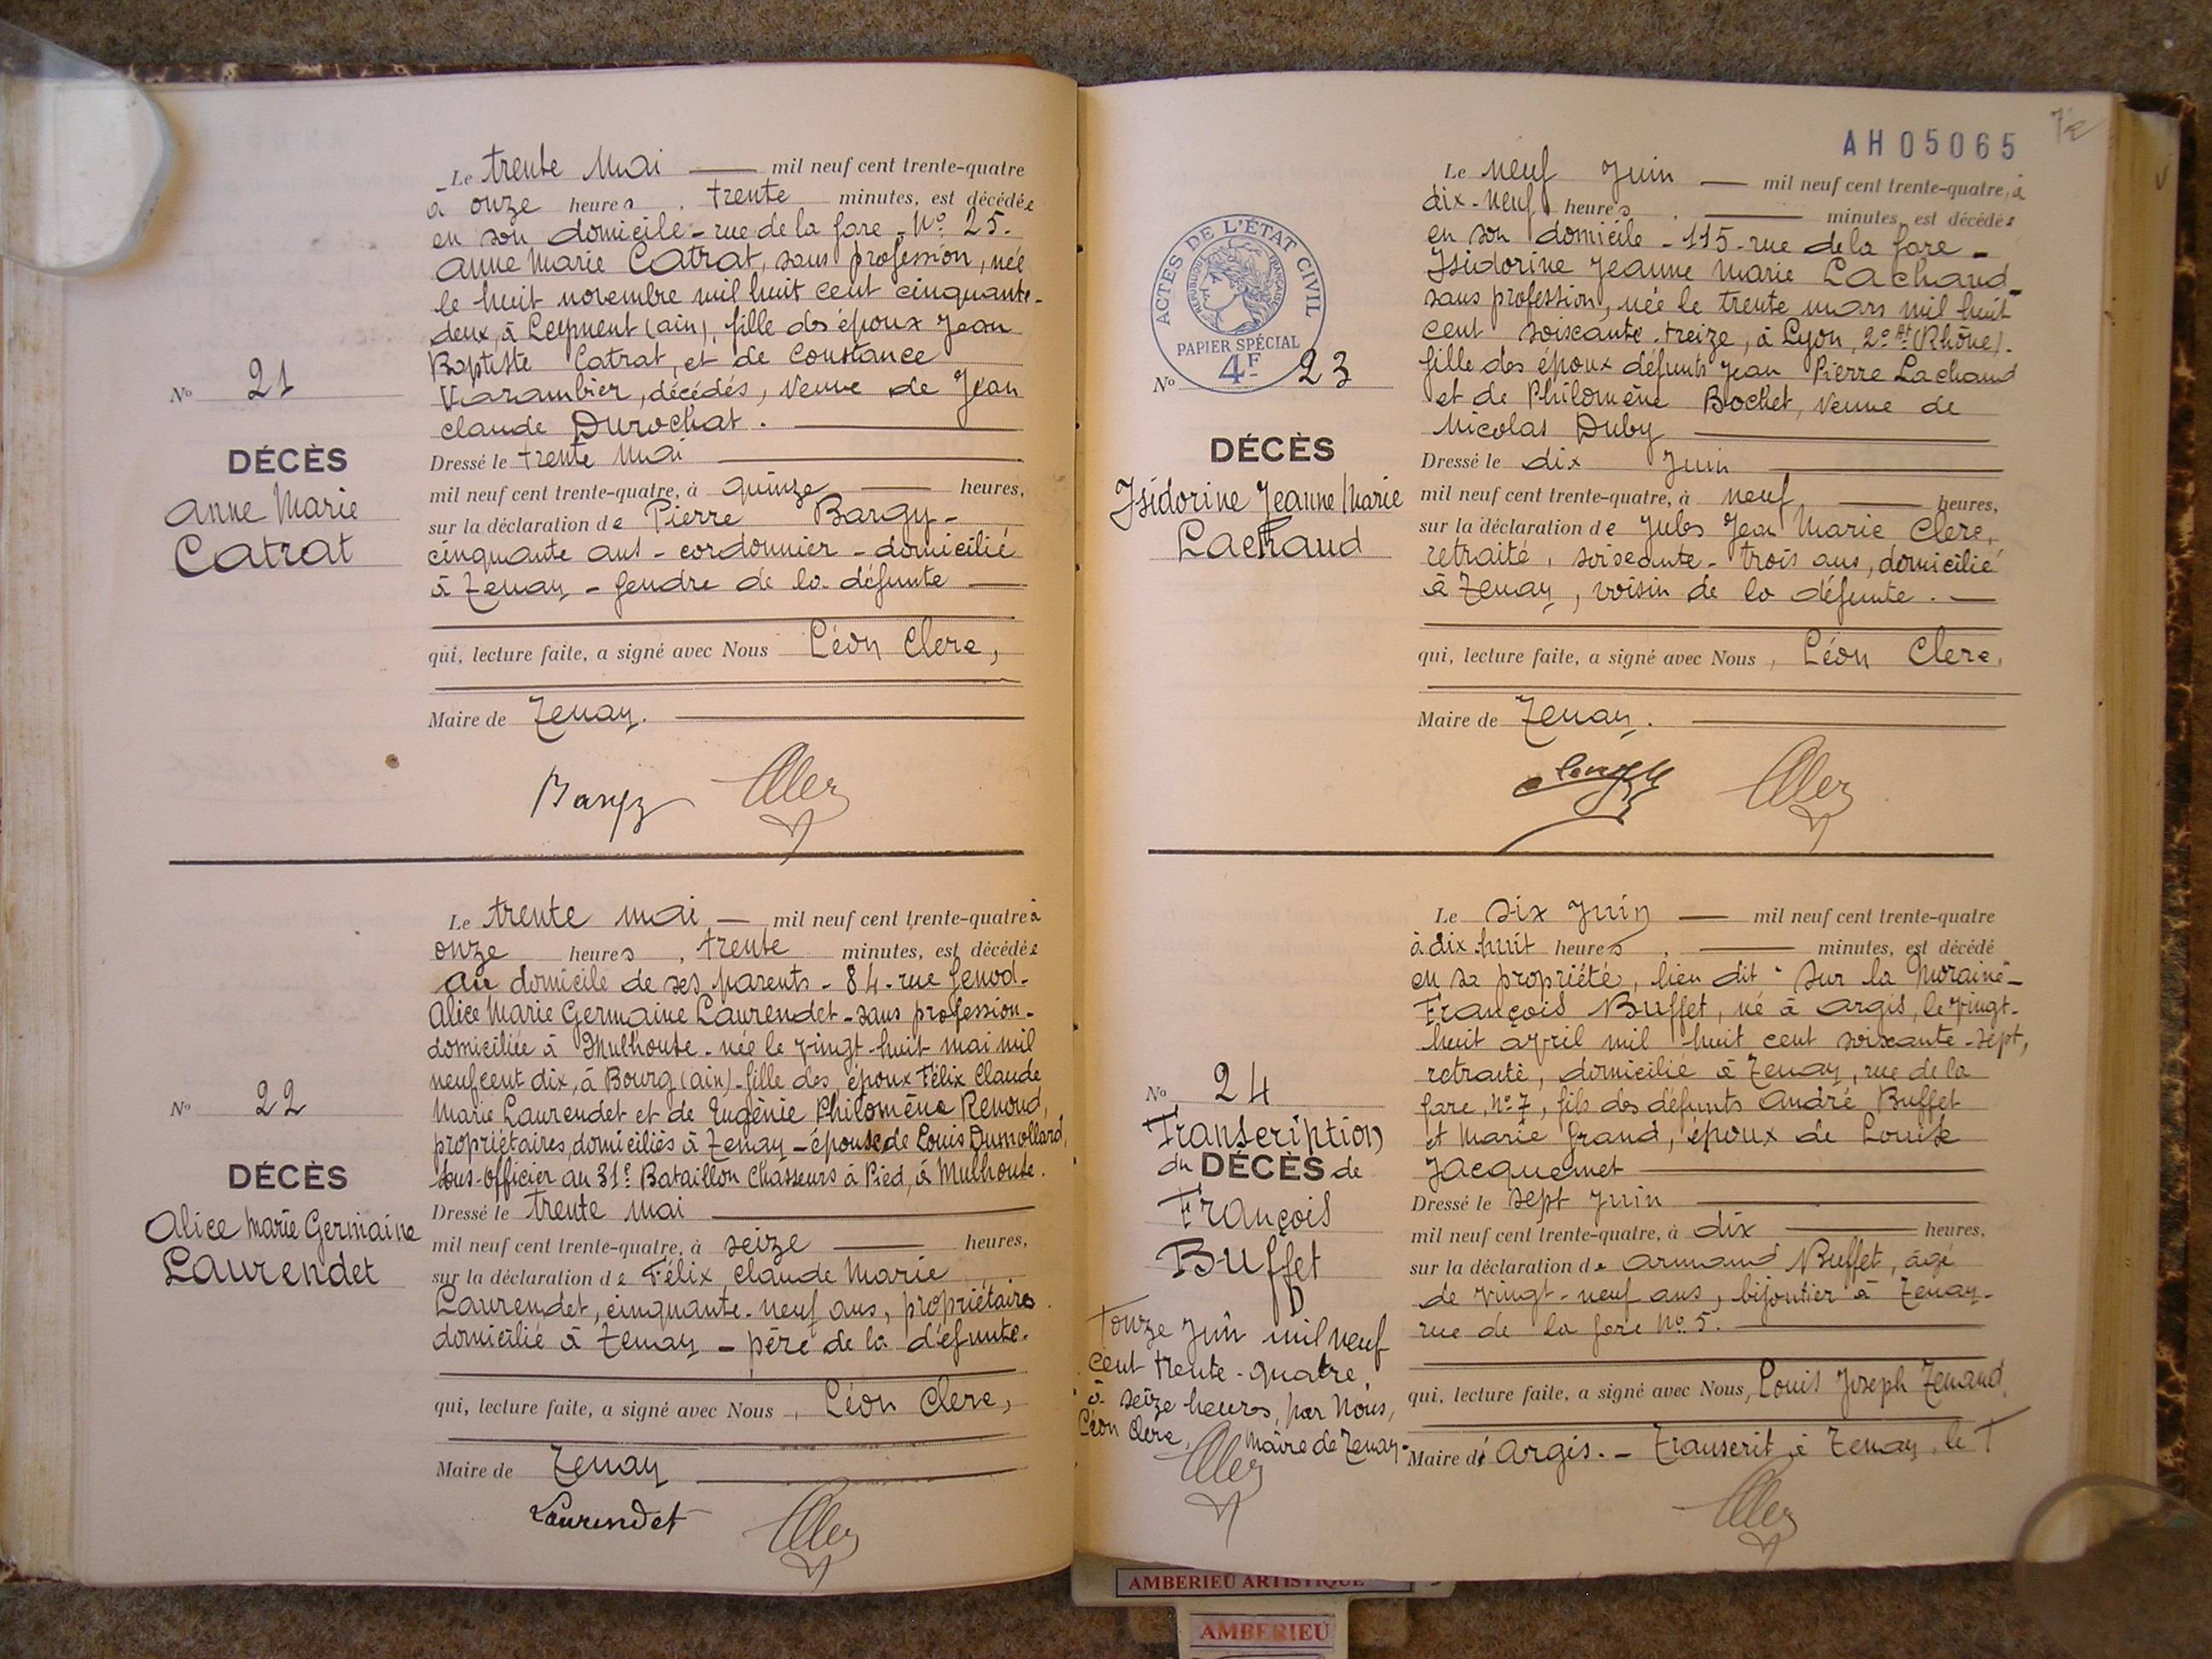 Le trente Mai — mil neuf cent trente-quatre
à onze heures, trente minutes, est décédée
en son domicile - rue de la gare - N° 25.
Anne Marie Catrat, sans profession, née
le huit novembre mil huit cent cinquante-
deux, à Leyment (ain), fille des époux Jean
Baptiste Catrat, et de Constance
Varambier, décédés, veuve de Jean
Claude Durochat.
N° 21
DÉCÈS
Anne Marie
Catrat
Dressé le trente Mai
mil neuf cent trente-quatre, à quinze heures,
sur la déclaration de Pierre Bargy -
cinquante ans - cordonnier - domicilié
à Tenay - gendre de la défunte
qui, lecture faite, a signé avec Nous Léon Clerc,
Maire de Tenay.
Bargy
Le trente mai — mil neuf cent trente-quatre à
onze heures, trente minutes, est décédée
au domicile de ses parents - 84 - rue Genod -
Alice Marie Germaine Laurendet - sans profession -
domiciliée à Mulhouse - née le vingt-huit mai mil
neuf cent dix, à Bourg (ain) - fille des époux Félix Claude
Marie Laurendet et de Eugénie Philomène Renoud,
propriétaires, domiciliés à Tenay - épouse de Louis Dumollard,
sous-officier au 31e Bataillon Chasseurs à Pied, à Mulhouse.
N° 22
DÉCÈS
Alice Marie Germaine
Laurendet
Dressé le trente mai
mil neuf cent trente-quatre, à seize heures,
sur la déclaration de Félix Claude Marie
Laurendet, cinquante-neuf ans, propriétaires
domicilié à Tenay - père de la défunte.
qui, lecture faite, a signé avec Nous, Léon Clerc,
Maire de Tenay
Laurendet
AH05065
72
Le neuf Juin — mil neuf cent trente-quatre, à
dix-neuf heures, — minutes, est décédée
en son domicile - 115 - rue de la gare -
Isidorine Jeanne Marie Lachaud -
sans profession, née le trente mars mil huit
cent soixante-treize, à Lyon, 2e At (Rhône).
fille des époux défunts Jean Pierre Lachaud
et de Philomène Bochet, veuve de
Nicolas Duby
ACTES DE L'ÉTAT CIVIL
RÉPUBLIQUE FRANÇAISE
PAPIER SPÉCIAL
4F
N° 23
DÉCÈS
Isidorine Jeanne Marie
Lachaud
Dressé le dix Juin
mil neuf cent trente-quatre, à neuf heures,
sur la déclaration de Jules Jean Marie Clerc,
retraité, soixante-trois ans, domicilié
à Tenay, voisin de la défunte.
qui, lecture faite, a signé avec Nous, Léon Clerc,
Maire de Tenay.
Le six Juin — mil neuf cent trente-quatre
à dix huit heures, — minutes, est décédé
en sa propriété, lieu dit "Sur la Moraine" -
François Buffet, né à Argis, le vingt-
huit avril mil huit cent soixante-sept,
retraité, domicilié à Tenay, rue de la
gare, N° 7, fils des défunts André Buffet
et Marie Grand, époux de Louise
Jacquemet
N° 24
Transcription
du DÉCÈS de
François
Buffet
Dressé le sept Juin
mil neuf cent trente-quatre, à dix heures,
sur la déclaration de Armand Buffet, âgé
de vingt-neuf ans, bijoutier à Tenay -
rue de la gare N° 5.
qui, lecture faite, a signé avec Nous, Louis Joseph Tenand,
Maire d'Argis. - Transcrit à Tenay, le T
T onze Juin mil neuf
cent trente-quatre,
à seize heures, par Nous,
Léon Clerc, Maire de Tenay -
AMBERIEU ARTISTIQUE
AMBERIEU